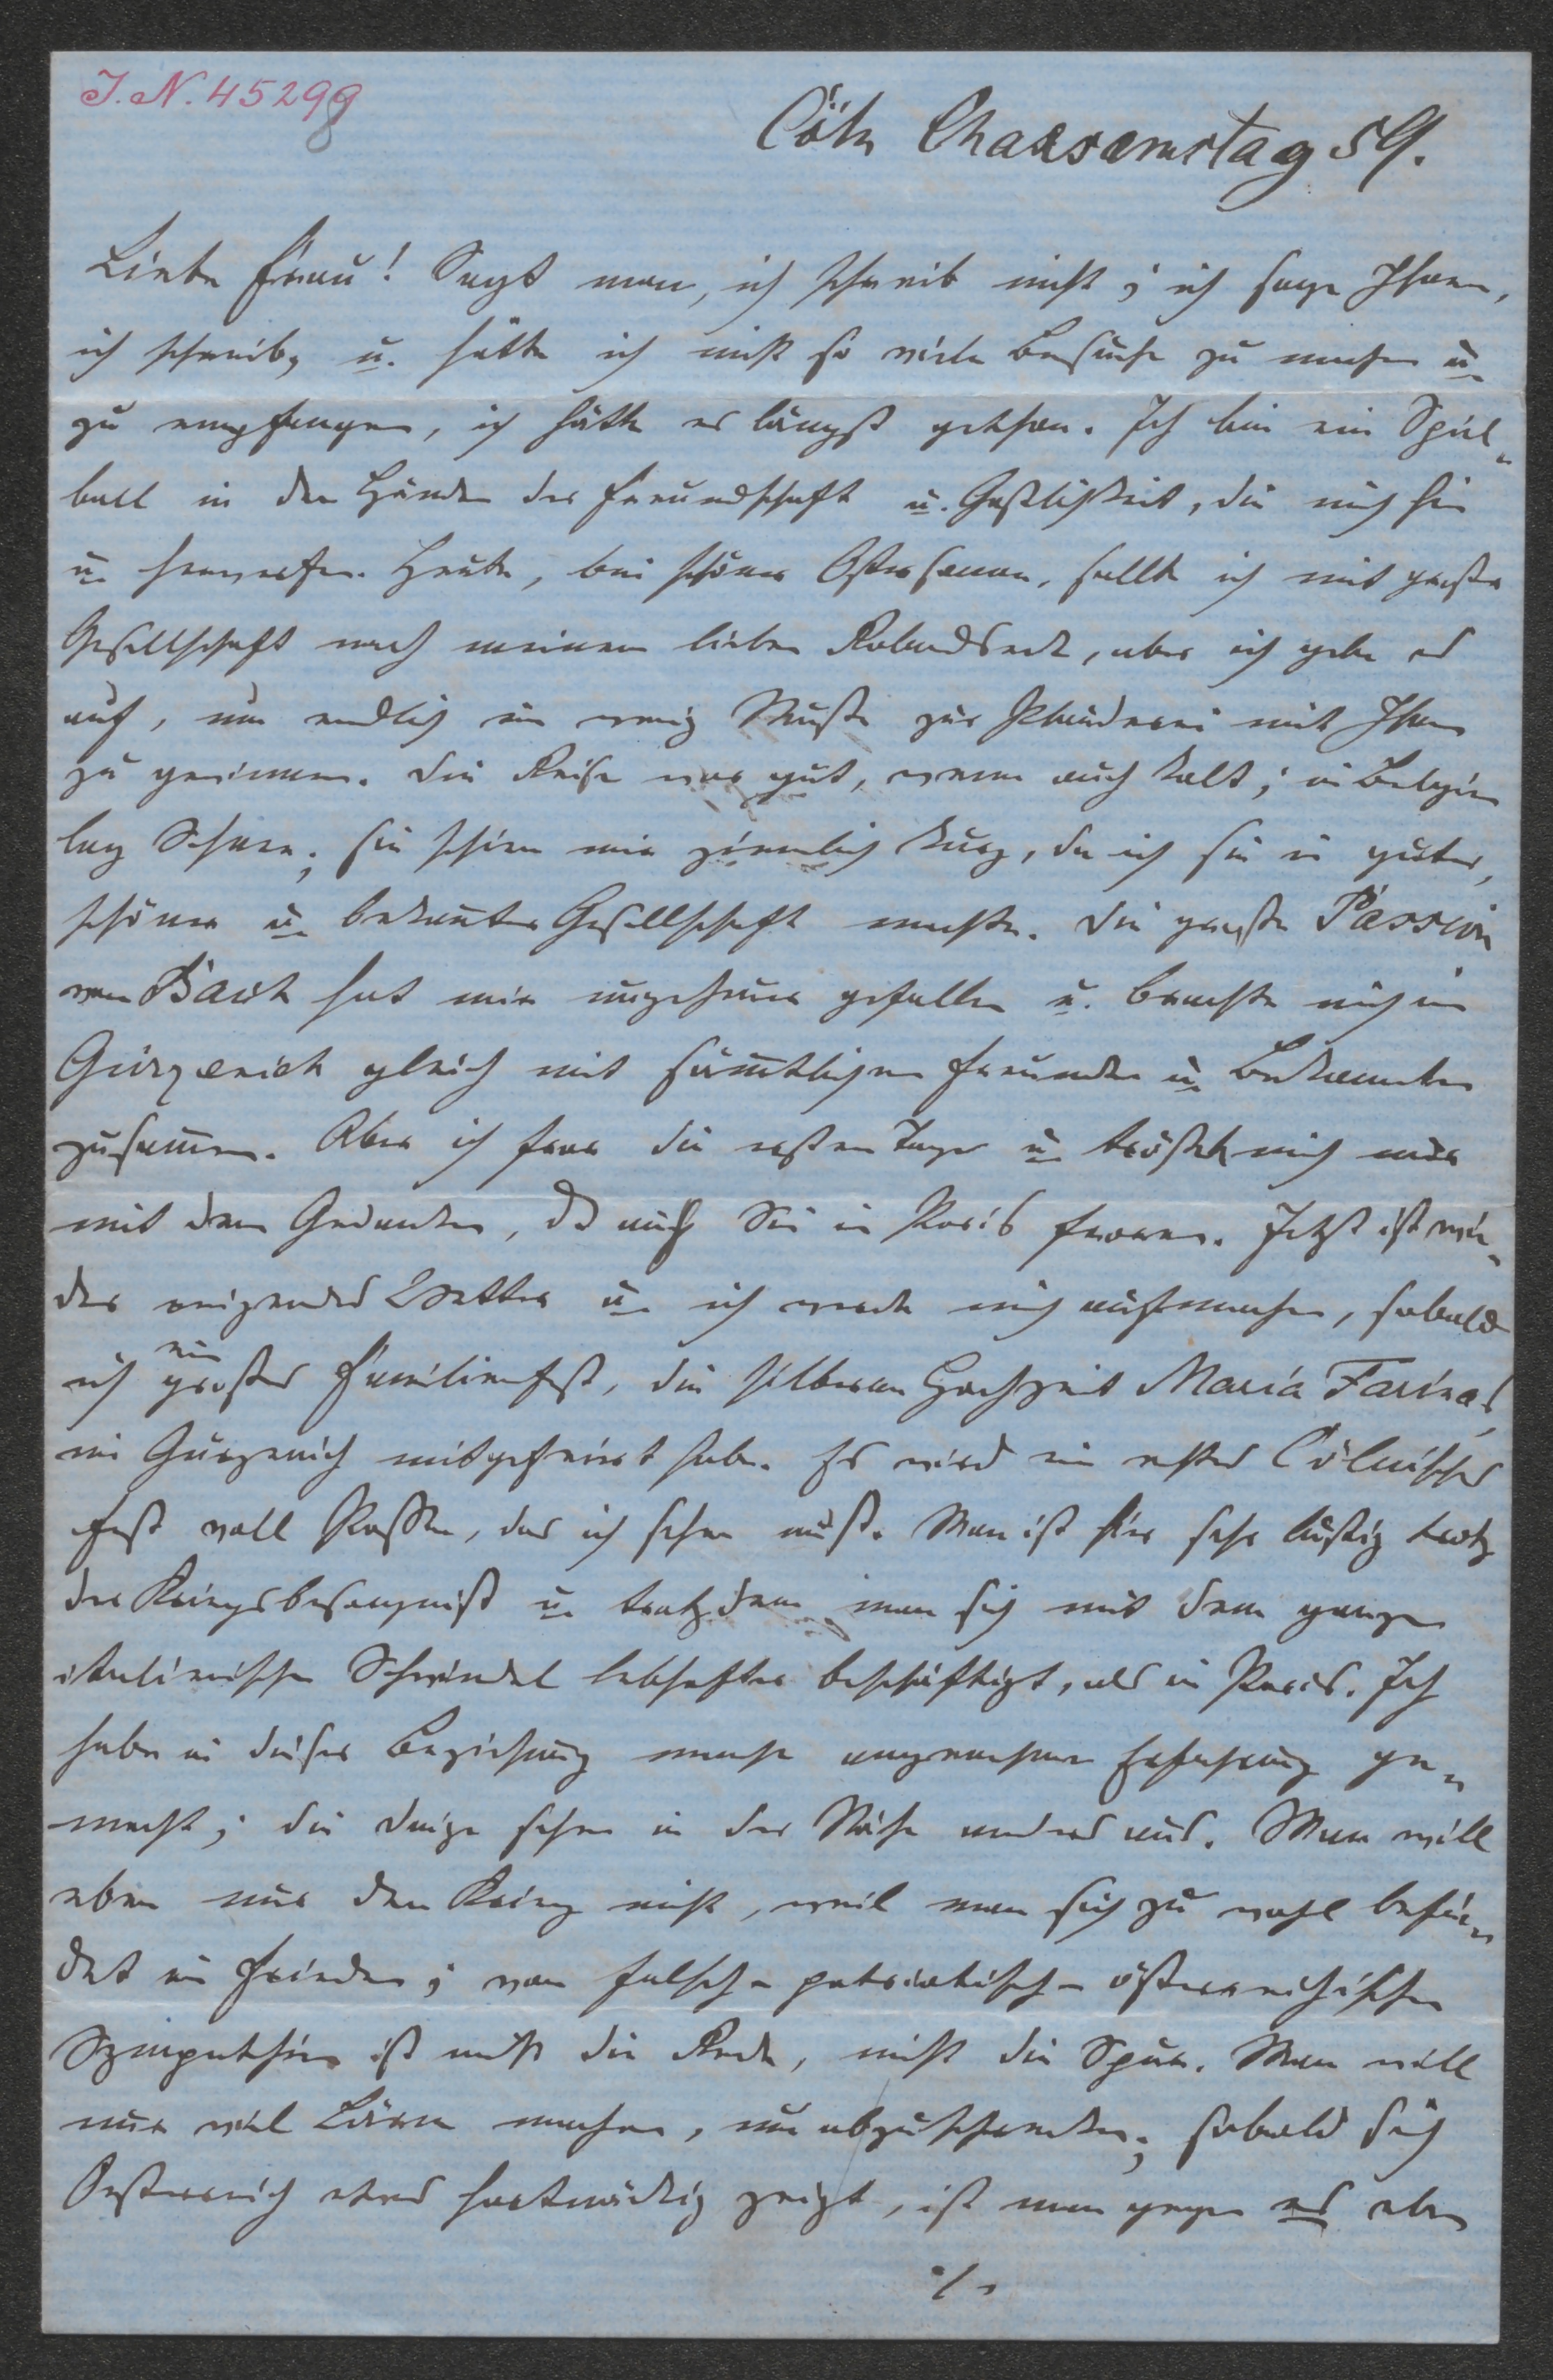 I. N. 45298
Cöln Charsamstag 59.
Liebe Frau! Sagt man, ich schreib nicht; ich sage Ihnen,
ich schreib, u. hätte ich nicht so viele Besuche zu machen u.
zu empfangen, ich hätte es längst gethan. Ich bin ein Spiel-
ball in den Händen der Freundschaft u. Gastlichkeit, die mich hin
u. herwerfen. Heute, bei schöner Ostersonne, sollte ich mit großer
Gesellschaft nach meinem lieben Rolandseck, aber ich gebe es
auf, um endlich ein wenig Muße zur Plauderei mit Ihnen
zu gewinnen. Die Reise war gut, wenn auch kalt; in Belgien
lag Schnee; sie schien mir ziemlich kurz, da ich sie in guter,
schöner u. bekannter Gesellschaft machte. Die große Passion
von Bach hat mir ungeheuer gefallen u. brachte mich im
Gürzenich gleich mit sämmtlichen Freunden u. Bekannten
zusammen. Aber ich fror die ersten Tage u. tröstete mich nur
mit dem Gedanken, dß auch Sie in Paris froren. Jetzt ist wie-
der reizendes Wetter u. ich werde mich aufmachen, sobald
ich ein großes Familienfest, die silberne Hochzeit Maria Farinas,
im Gürzenich mitgefeiert habe. Es wird ein echtes Cölnisches
Fest voll Possen, das ich sehen muß. Man ist hier sehr lustig trotz
der Kriegsbesorgniß u. trotzdem man sich mit dem ganzen
italienischen Schwindel lebhafter beschäftigt, als in Paris. Ich
habe in dieser Beziehung manche angenehme Erfahrung ge-
macht; die Dinge sehen in der Nähe anders aus. Man will
eben nur den Krieg nicht, weil man sich zu wohl befin-
det im Frieden; von falsch-patriotisch-österreichischen
Sympathien ist nicht die Rede, nicht die Spur. Man will
nur viel Lärm machen, um abzuschrecken; sobald sich
Oesterreich etwas hartnäckig zeigt, ist man gegen es eben
./.